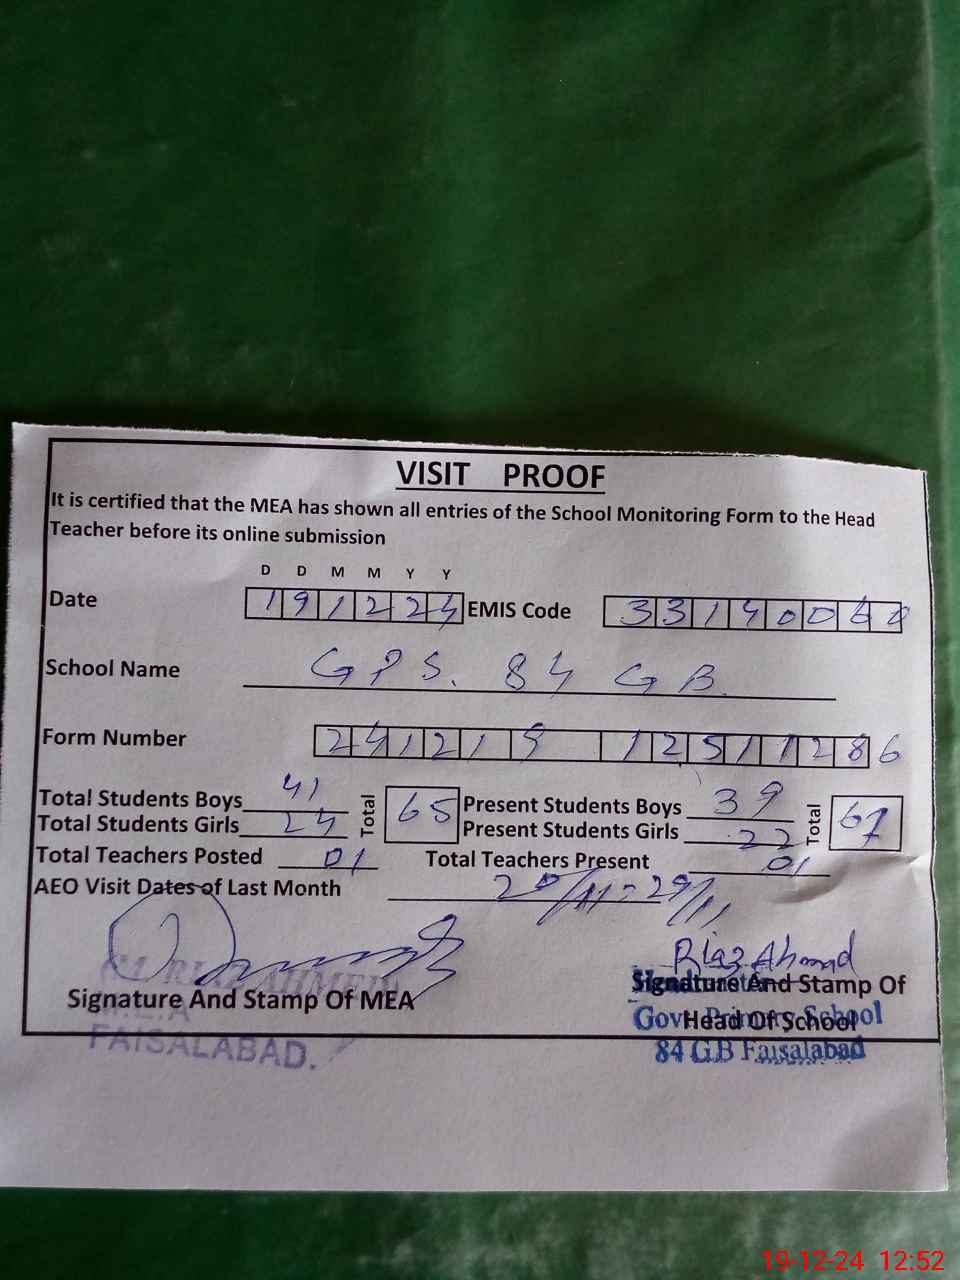 VISIT PROOF
It is certified that the MEA has shown all entries of the School Monitoring Form to the Head
Teacher before its online submission
D D M M Y Y
Date 191224 EMIS Code 33140060
School Name GPS. 84 GB.
Form Number 241219 12511286
Total Students Boys 41 Total 65 Present Students Boys 39 Total 61
Total Students Girls 24 Present Students Girls 22
Total Teachers Posted 01 Total Teachers Present 01
AEO Visit Dates of Last Month 20/11 - 29/11
Riaz Ahmad
Signature And Stamp Of MEA Signature And Stamp Of
Head Of School
RIAZ AHMED
M.E.A
FAISALABAD.
Govt. Primary School
84 G.B Faisalabad
19-12-24 12:52